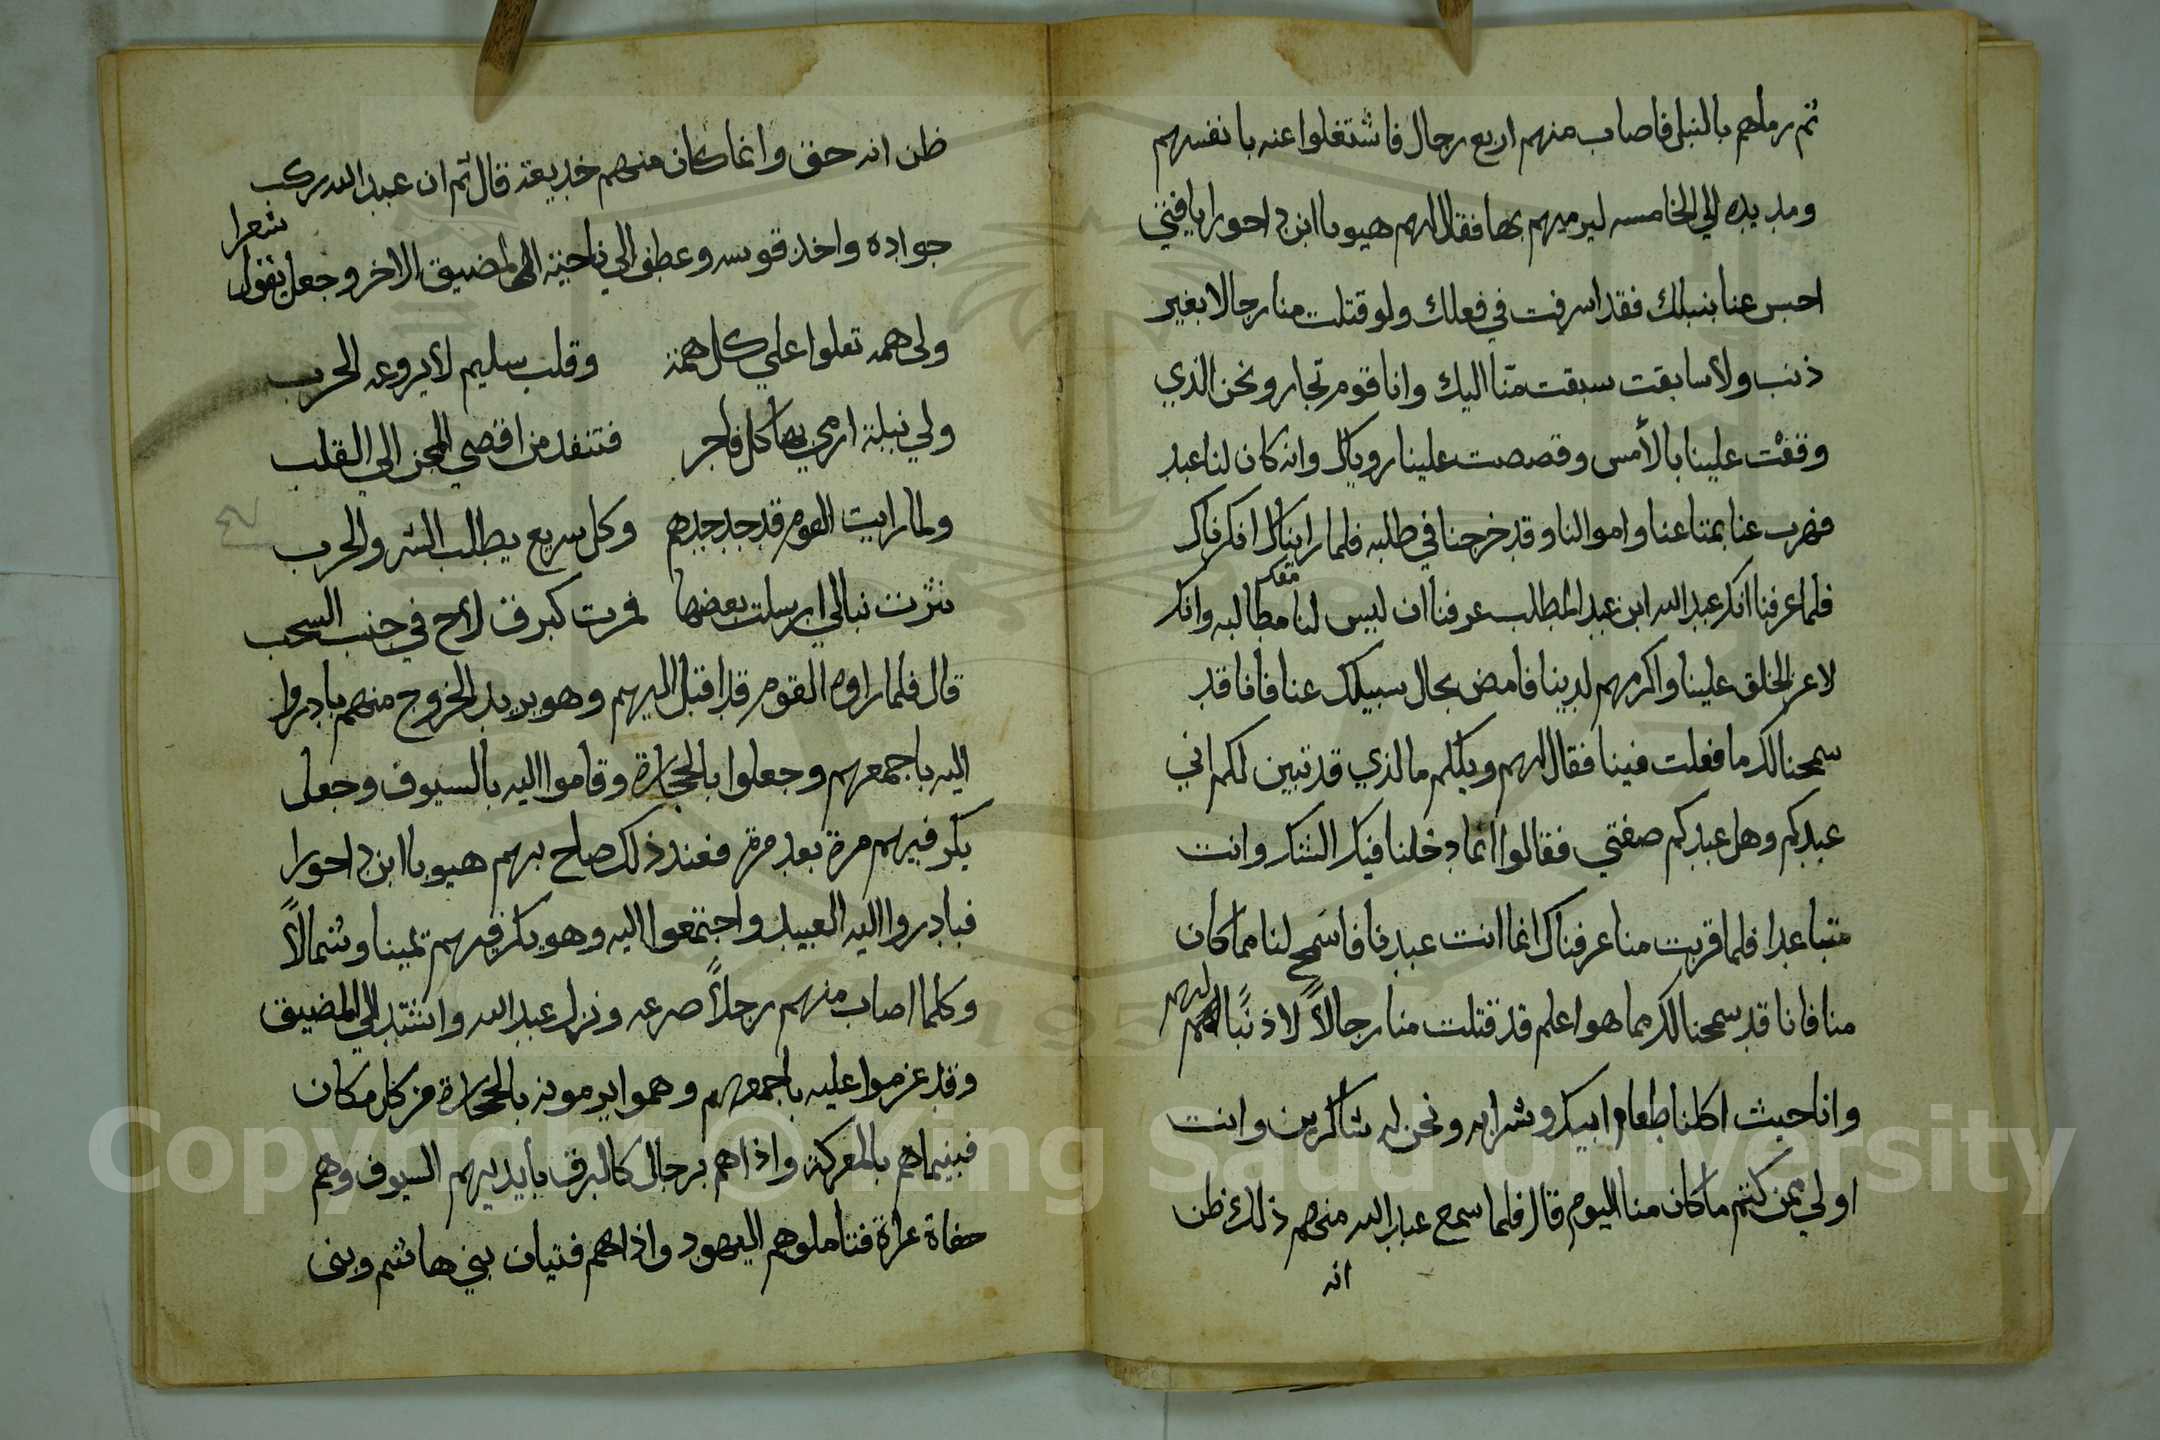 ثم رماهم بالنبل فاصاب منهم اربع رجال فاشتغلوا عنه بانفسهم
ومد يده الي الخامسه ليرميهم بها فقال لهم هيوبا ابن داحورا يافتي
احبس عنا بنبلك فقد اسرفت في فعلك ولو قتلت منا رجالا بغير
ذنب ولا سابقت سبقت منّا اليك وانا قوم تجار ونحن الذي
وقفت علينا بالأمس وقصصت علينا روياك وانه كان لنا عبد
فهرب عنا بمتاعنا واموالنا وقد خرجنا في طلبه فلما رايناك
فلما عرفنا انك عبد الله ابن عبد المطلب عرفنا ان ليس لنا معك مطالبه وانك
لاعز الخلق علينا واكرمهم لدينا فامض بحال سبيلك عنا فانا قد
سمحنا لك ما فعلت فينا فقال لهم ويلكم ما لذي قد تبين لكم اني
عبدكم وهل عبدكم صفتي فقالوا انما دخلنا فيك الشك وانت
متباعدا فلما قربت منا عرفناك انما انت عبدنا فاسمح لنا مما كان
منا فانا قد سمحنا لك مما هو اعلم قد قتلت منا رجالاً لا ذنبًا لهم
وانا حيث اكلنا طعام ابيك وشرابه ونحن له شاكرين وانت
اولي بمن كتم ما كان منا اليوم قال فلما سمع عبد الله منهم ذلك ظن
انه
ظن انه حق وانما كان منهم خديعة قال ثم ان عبد الله ركب
جواده واخذ قوسه وعطف الي ناحية المضيق الاخر وجعل يقول
شعرا
ولي همه تعلوا علي كل همة وقلب سليم لا يروعه الحرب
ولي نبلة ارمي بها كل فاجر فتنفد من اقصي المجن الي القلب
ولما رايت القوم قد جد جدهم وكل سريع يطلب الشر والحرب
نثرت نبالي ارسلت بعضها فمرت كبرق لامح في جنب السحب
قال فلما راوه القوم قد اقبل اليهم وهو يريد الخروج منهم بادروا
اليه باجمعهم وجعلوا بالحجارة وقاموا اليه بالسيوف وجعل
يكر فيهم مرة بعد مرة فعند ذلك صاح بهم هيوبا ابن داحورا
فبادروا اليه العبيد واجتمعوا اليه وهو يكر فيهم يمينا وشمالاً
وكلما اصاب منهم رجلاً صرعه ونزل عبد الله واشتد الي المضيق
وقد عزموا عليه باجمعهم وهموا يرمونه بالحجارة من كل مكان
فبينما هم بالمعركة واذا هم برجال كالبرق بأيديهم السيوف وهم
حفاة عراة فتأملوهم اليهود واذا هم فتيان بني هاشم وبني
Copyright © King Saud University
1957